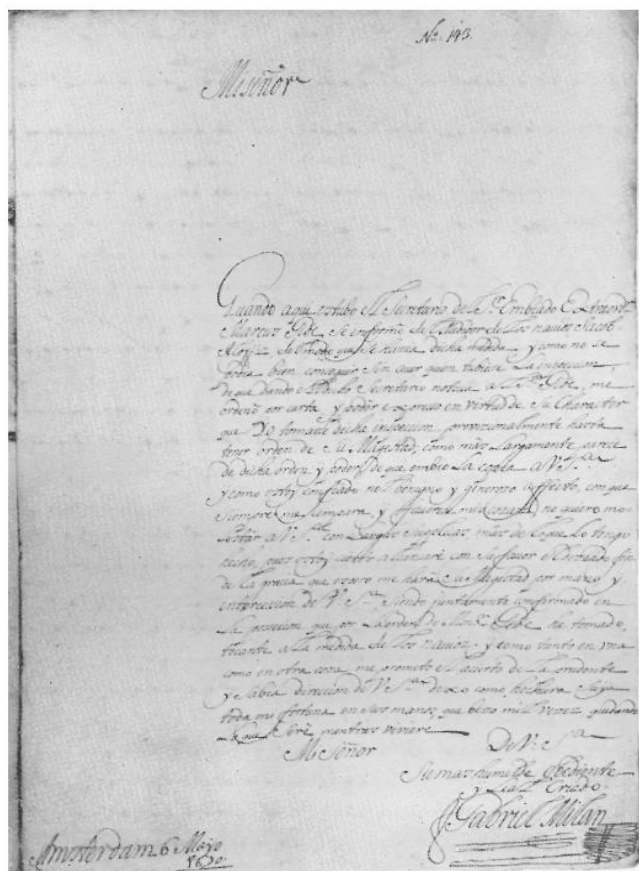 No. 143.
Mi señor
Quando aqui estubo el Secretario del Sr. Embiado Extraord.
Marcus Gioe, se informò del Medidor de los navios Jacob
del modo que se hazia dicha medida, y como no se
podia bien conseguir sin aver quien tubiese la inspeccion,
de que dando el dicho Secretario noticia al Sr. Gioe, me
ordenò por carta, y poder expresso en virtud de su Character
que Yo tomase dicha inspeccion provisionalmente hasta
tener orden de su Magestad, como mas largamente parece
de dicha orden y poder, de que embio la copia a V. Sa.
y como estoy confiado nel benigno y generoso affecto, con que
siempre me ampara, y no quiero mo
lestar a V. Sa. con largas suplicas, mas de lo que lo tengo
hecho, pues estoy cierto alcansarè con su favor el deseado fin
de la gracia que espero me harà su Magestad por mano y
intercecion de V. Sa. siendo juntamente confirmado en
la possecion que por la orden de Monr. Gioe he tomado,
tocante a la medida de los navios, y como tanto en una
como en otra coza, me prometo el acierto de la prudente
y sabia direcion de V. Sa. dexo como hechura suya
toda mi fortuna en sus manos, que bezo mil vezes
que serè mientras viviere
Mi Señor
De V. Sa.
Su mas humilde obediente
y Leal Criado.
Gabriel Milan
Amsterdam 6 Mayo
1670.